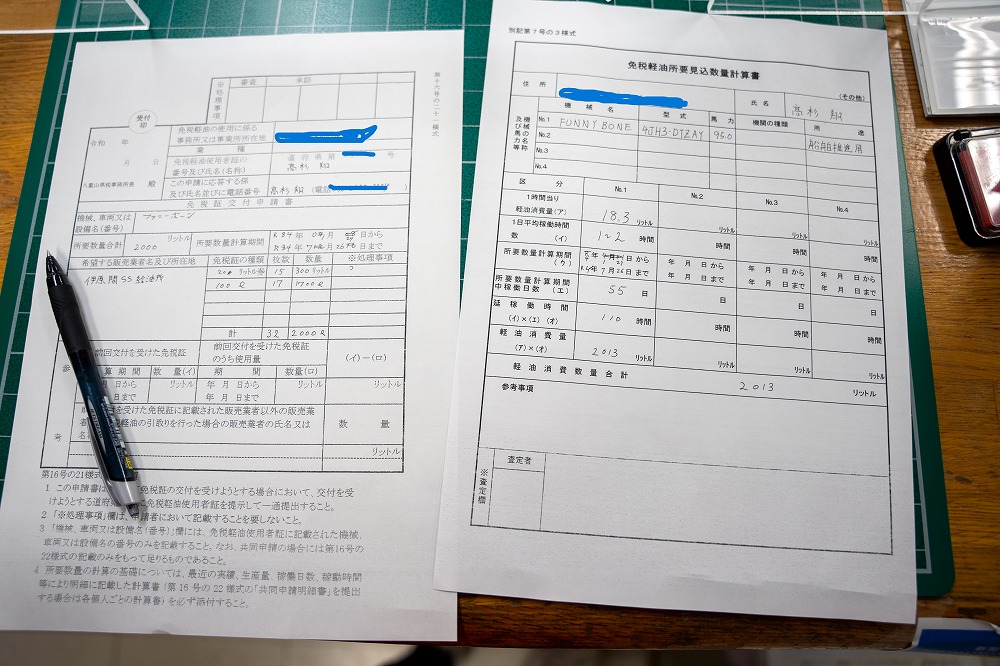 第十六号の二十一様式
※処理事項
審査
承認
受付印
令和 年
月 日
八重山県税事務所長 殿
免税軽油の使用に係る
事務所又は事業所所在地
業種
免税軽油使用者証の
番号及び氏名(名称)
道府県第 号
高杉 翔
この申請に応答する係
及び氏名並びに電話番号
高杉 翔 (電話
免税証交付申請書
機械、車両又は
設備名(番号)
ファニーボーン
所要数量合計 2000 リットル
所要数量計算期間
日から
日まで
希望する販売業者名及び所在地
伊原間SS給油所
免税証の種類 枚数 数量 ※処理事項
20 リットル券 15 300リットル
100 17 1700
計 32 2000
前回交付を受けた免税証
前回交付を受けた免税証
のうち使用量
(イ)-(ロ)
算期間 数量(イ) 期間 数量(ロ)
日から リットル 年 月 日から リットル リットル
日まで 年 月 日まで
参考
を受けた免税証に記載された販売業者以外の販売業
軽油の引取りを行った場合の販売業者の氏名又は
数量
リットル
第16号の21様式
1 この申請書は 免税証の交付を受けようとする場合において、交付を受
けようとする道府 に免税軽油使用者証を提示して一通提出すること。
2 「※処理事項」欄は、申請者において記載することを要しないこと。
3 「機械、車両又は設備名(番号)」欄には、免税軽油使用者証に記載された機械、
車両又は設備名の番号のみを記載すること。なお、共同申請の場合には第16号の
22様式の記載のみをもって足りるものであること。
4 所要数量の計算の基礎については、最近の実績、生産量、稼働日数、稼動時間
等により明細に記載した計算書(第16号の22様式の「共同申請明細書」を提出
する場合は各個人ごとの計算書)を必ず添付すること。
別記第7号の3様式
免税軽油所要見込数量計算書
(その他)
住所
氏名 高杉 翔
及び馬力等
機械の名称
機械名 型式 馬力 機関の種類 用途
No.1 FUNNY BONE 4JH3-DTZAY 95.0 船舶推進用
No.2
No.3
No.4
区分 No.1 No.2 No.3 No.4
1時間当り
軽油消費量(ア)
18.3 リットル リットル リットル リットル
1日平均稼働時間
数 (イ)
1~2 時間 時間 時間 時間
所要数量計算期間
(ウ)
日から 年 月 日から 年 月 日から 年 月 日から
年7月26日まで 年 月 日まで 年 月 日まで 年 月 日まで
所要数量計算期間
中稼働日数(エ)
55 日 日 日 日
延稼働時間
(イ)×(エ)(オ)
110 時間 時間 時間 時間
軽油消費量
(ア)×(オ)
2013 リットル リットル リットル リットル
軽油消費数量合計 2013 リットル
参考事項
※査定欄
査定者